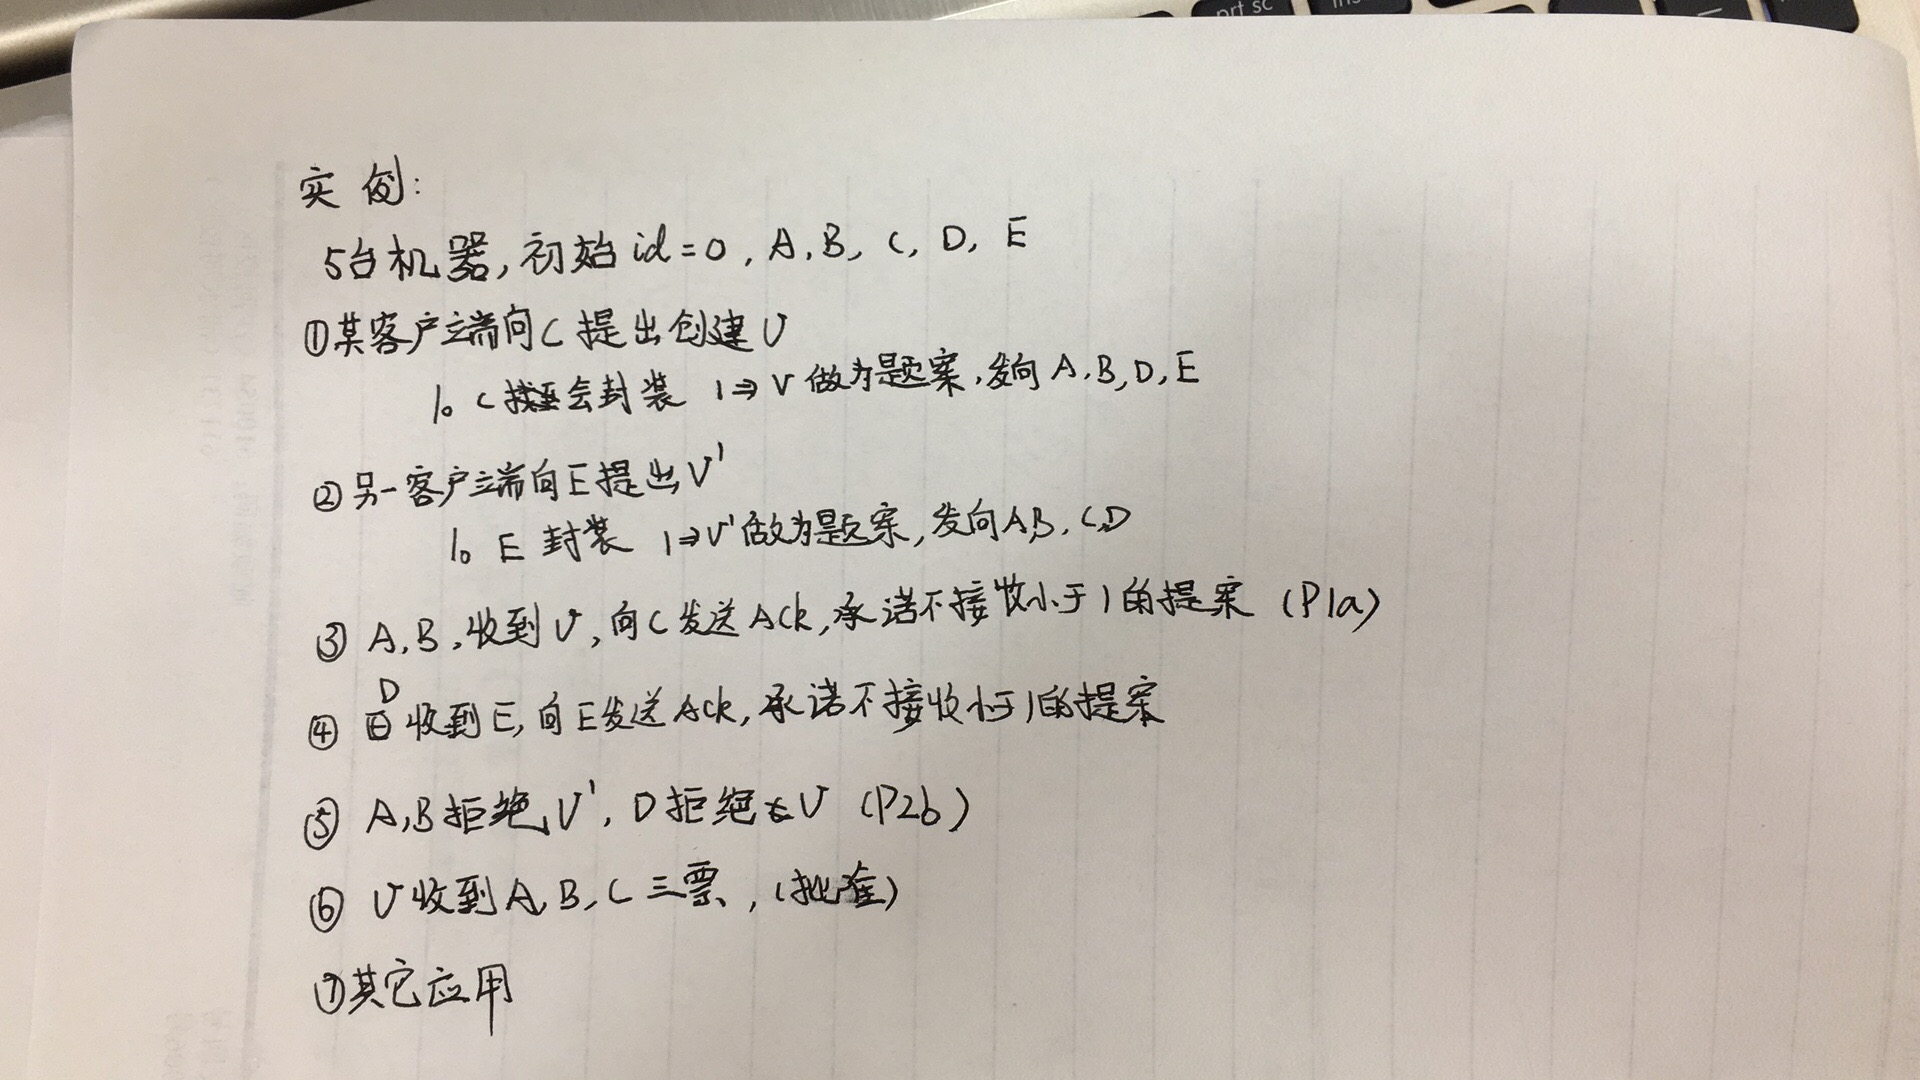 prt sc
ins
实例:
5台机器,初始id=0,A,B,C,D,E
①某客户端向C提出创建V
1。C会封装 1⇒V做为题案,发向A,B,D,E
②另一客户端向E提出V'
1。E封装 1⇒V'做为题案,发向A,B,C,D
③A,B,收到V,向C发送Ack,承诺不接收小于1的提案(P1a)
④D收到E,向E发送Ack,承诺不接收小于1的提案
⑤A,B拒绝V',D拒绝V(P2b)
⑥V收到A,B,C三票,(批准)
⑦其它应用